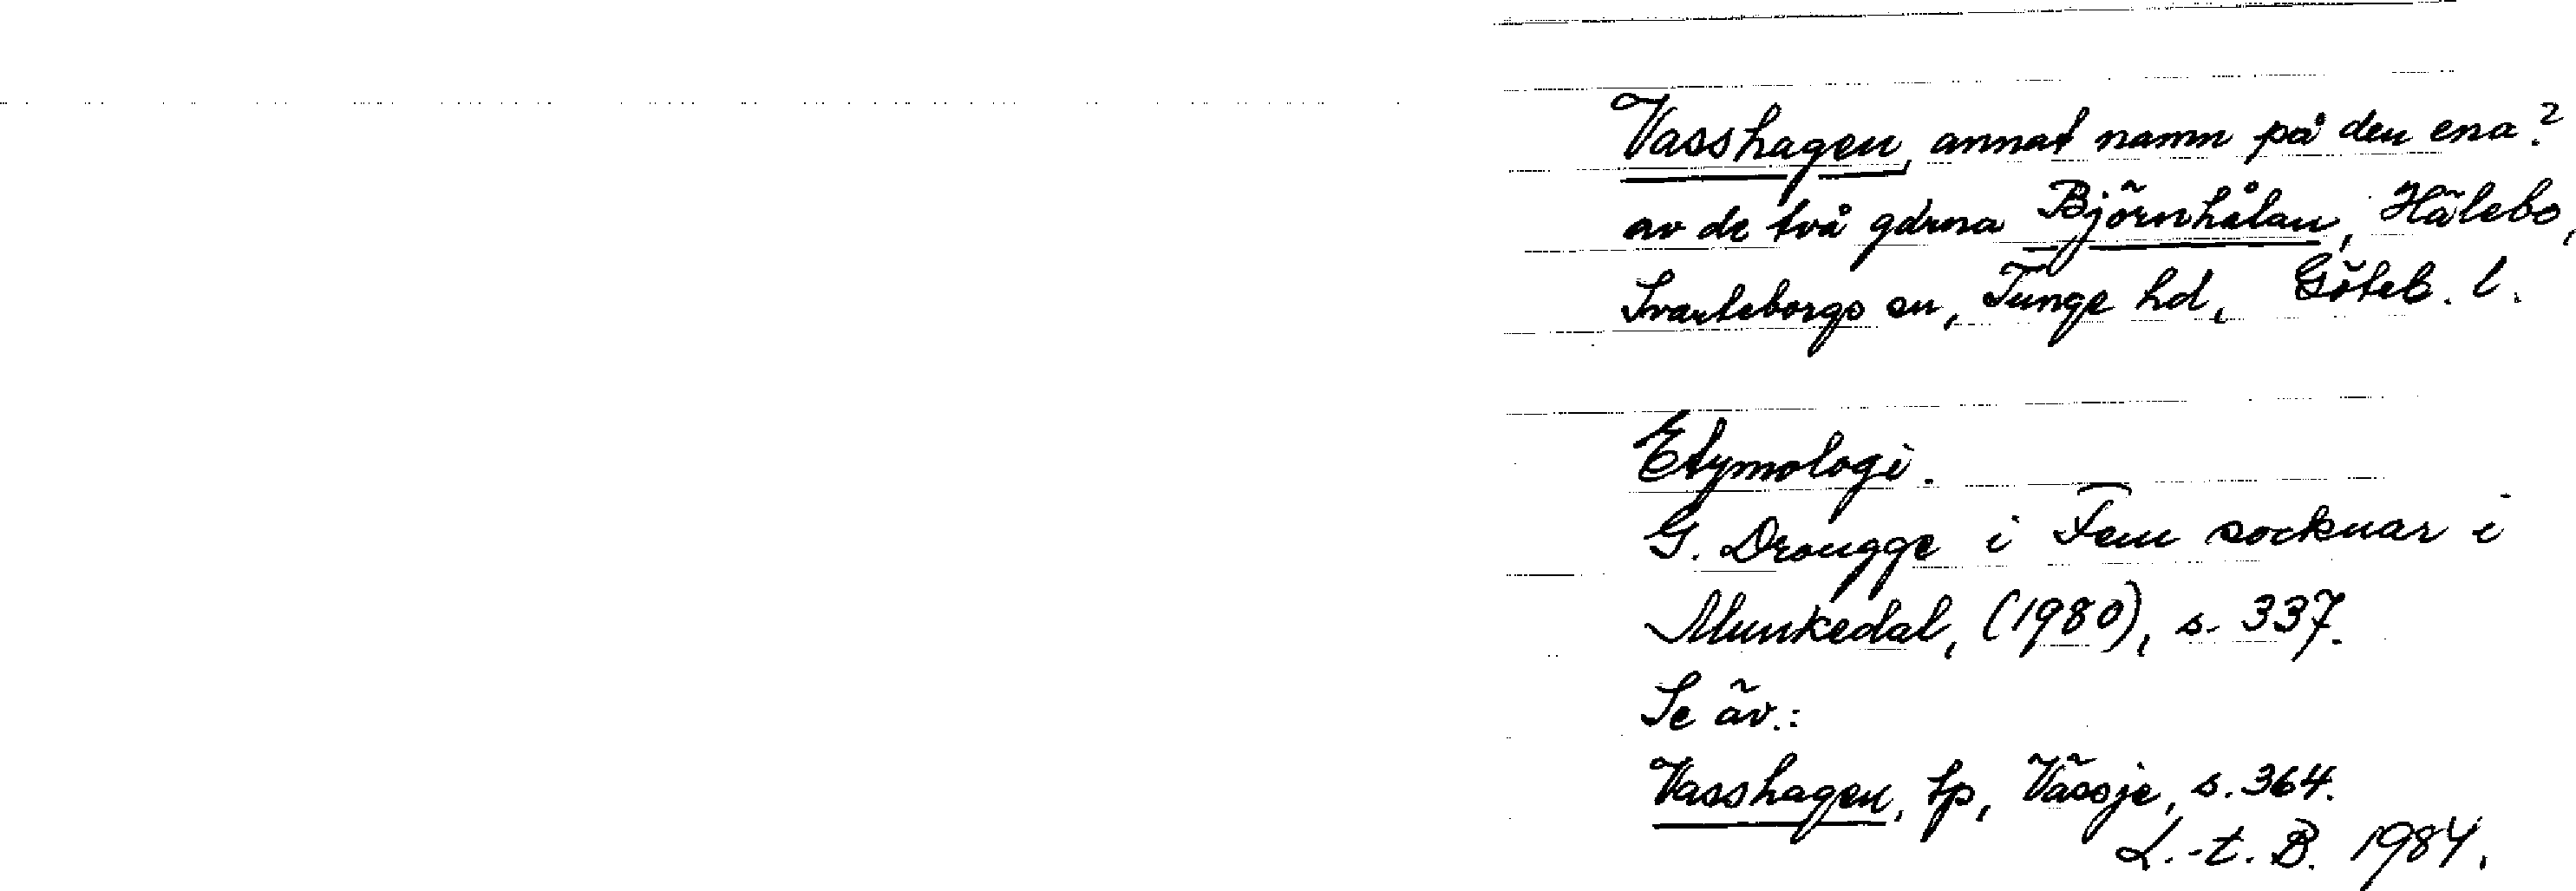 Vasshagen, annat namn på den ena?
av de två gdrna Björnhålan, Hälebo,
Svarteborgs sn, Tunge hd, Göteb. l.
Etymologi.
G. Drougge i Fem socknar i
Munkedal, (1980), s. 337.
Se äv.:
Vasshagen, tp, Vässje, s. 364.
L.-t. B. 1984.